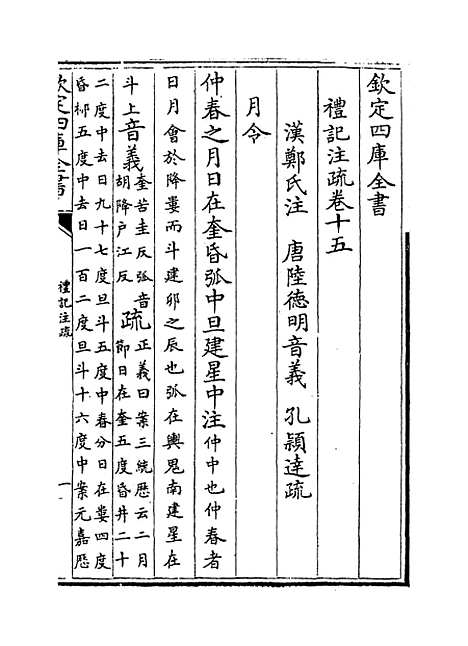 欽定四庫全書
禮記注疏卷十五
漢鄭氏注　唐陸德明音義　孔穎達疏
月令
仲春之月日在奎昏弧中旦建星中注仲中也仲春者
日月會於降婁而斗建卯之辰也弧在輿鬼南建星在
斗上音義奎苦圭反弧音
胡降户江反疏正義曰案三統厯云二月
節日在奎五度昏井二十
二度中去日九十七度旦斗五度中春分日在婁四度
昏柳五度中去日一百二度旦斗十六度中案元嘉厯
欽定四庫全書
禮記注疏
一